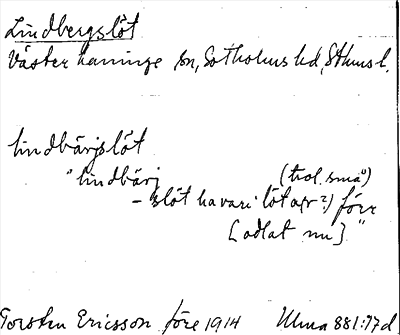 Lindbergslöt
Västerhaninge sn, Sotholms hd, Sthms l.
lindbärjslöt
"lindbärj (trol. små)
- slöt ha vari löta(r?) förr
[odlat nu]"
Torsten Ericsson före 1914 Ulma 881:77d